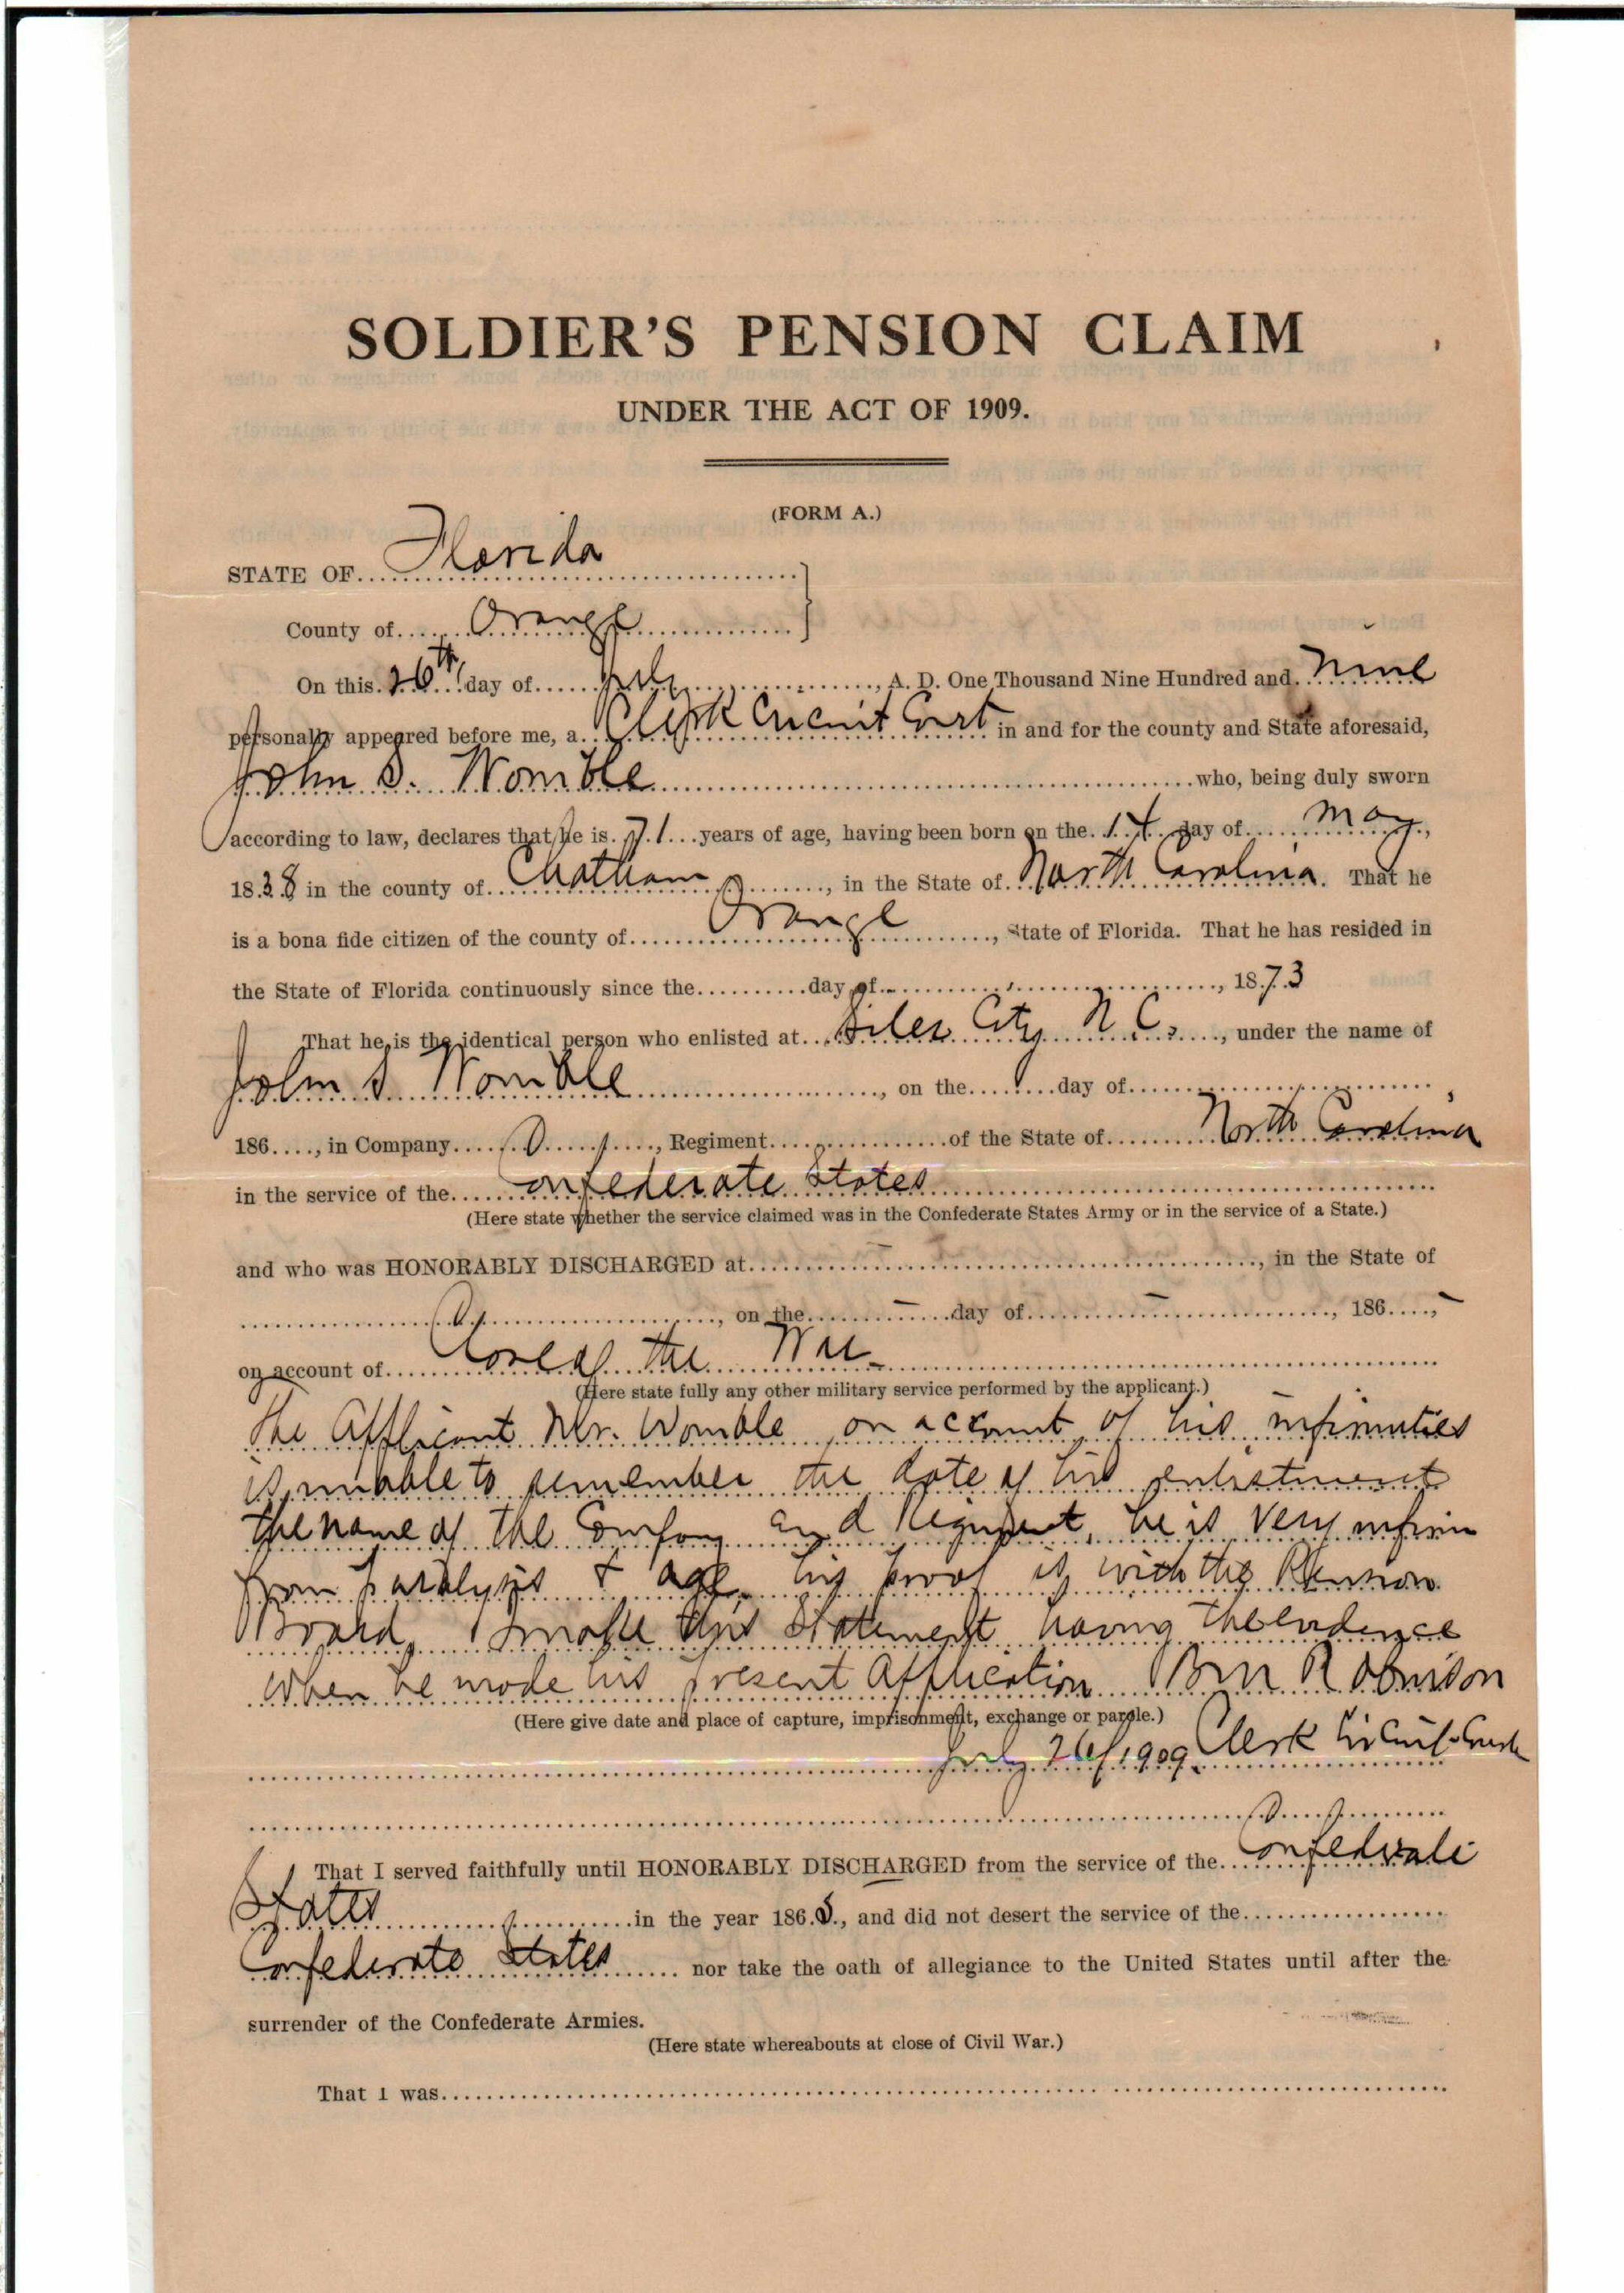 SOLDIER'S PENSION CLAIM
UNDER THE ACT OF 1909.
(FORM A.)
STATE OF Florida
County of Orange
On this 26th day of July, A. D. One Thousand Nine Hundred and Nine
personally appeared before me, a Clerk Circuit Court in and for the county and State aforesaid,
John S. Womble who, being duly sworn
according to law, declares that he is 71 years of age, having been born on the day of May,
1838 in the county of Chatham, in the State of North Carolina. That he
is a bona fide citizen of the county of Orange, State of Florida. That he has resided in
the State of Florida continuously since the..........day of.............................., 1873
That he is the identical person who enlisted at Siler City N.C., under the name of
John S. Womble, on the........day of..............................
186...., in Company.............., Regiment..................of the State of North Carolina
in the service of the Confederate States
(Here state whether the service claimed was in the Confederate States Army or in the service of a State.)
and who was HONORABLY DISCHARGED at........................................, in the State of
........................................, on the.....–.....day of..........–..............., 186....,–
on account of Close of the War
(Here state fully any other military service performed by the applicant.)
The Applicant Mr. Womble on account of his infirmities
is unable to remember the date of his enlistment
the name of the Company and Regiment, he is very infirm
from paralysis & age, his proof is with the Pension
Board, I make this Statement having the evidence
when he made his present Application B M Robinson
(Here give date and place of capture, imprisonment, exchange or parole.)
July 26/1909 Clerk Circuit Court
That I served faithfully until HONORABLY DISCHARGED from the service of the Confederate
States in the year 186 , and did not desert the service of the
Confederate States nor take the oath of allegiance to the United States until after the
surrender of the Confederate Armies.
(Here state whereabouts at close of Civil War.)
That I was..................................................